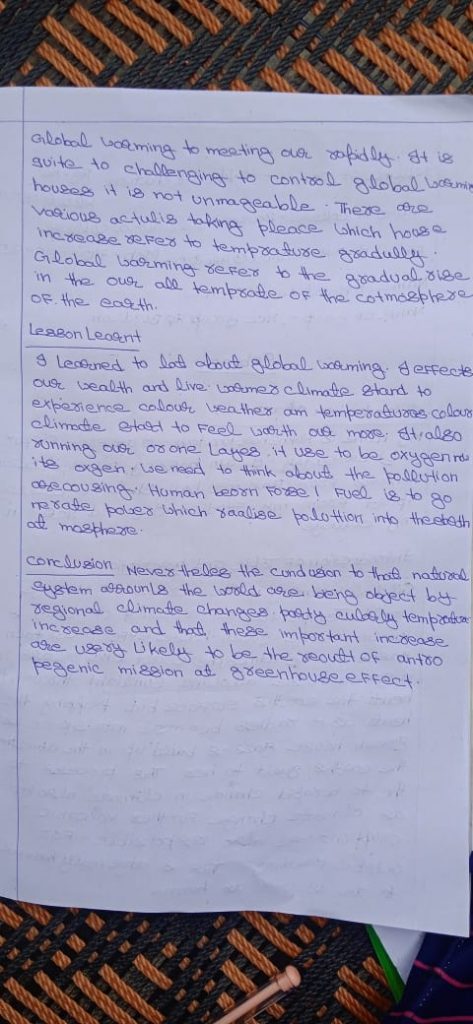 Global warming to meeting our rapidly. It is
quite to challenging to control global warmin
houses it is not unmageable. There are
various actulis taking pleace which house
increase refer to temprature gradually.
Global warming refer to the gradual rise
in the our all temprate of the cotmosphere
of the earth.
Lesson Learnt
I Learned to lot about global warming. It effects
our wealth and live warmer climate stard to
experience colour weather am temperatures colour
climate start to Feel warth our more. It also
running our or one Layes. it use to be oxygen
its oxgen. we need to think about the pollution
are cousing. Human beorn Forse! Fuel is to go
nerate power which raalise poluttion into the
at mosphere.
Conclusion Never theles the cundusion to that natural
system arounls the world are being object by
regional climate changes party cularly temprature
increase and that these important increase
are usery Likely to be the result of antro
pegenic mission at greenhouse effect.